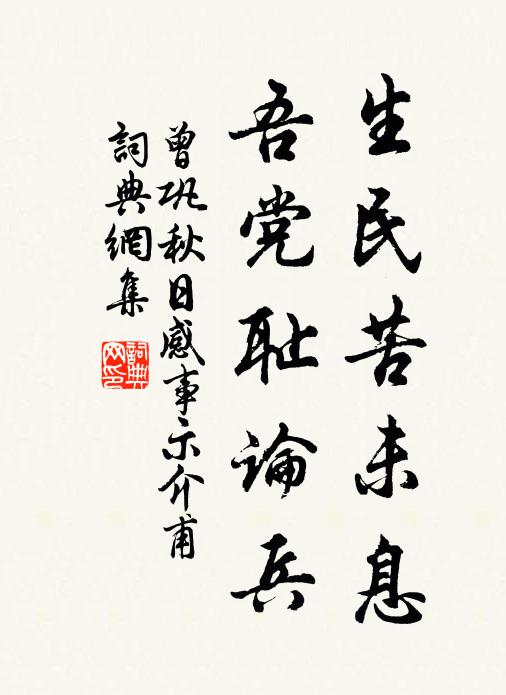 生民苦未息
吾党耻論兵
曾巩秋日感事示介甫
詞典網集
詞典网印